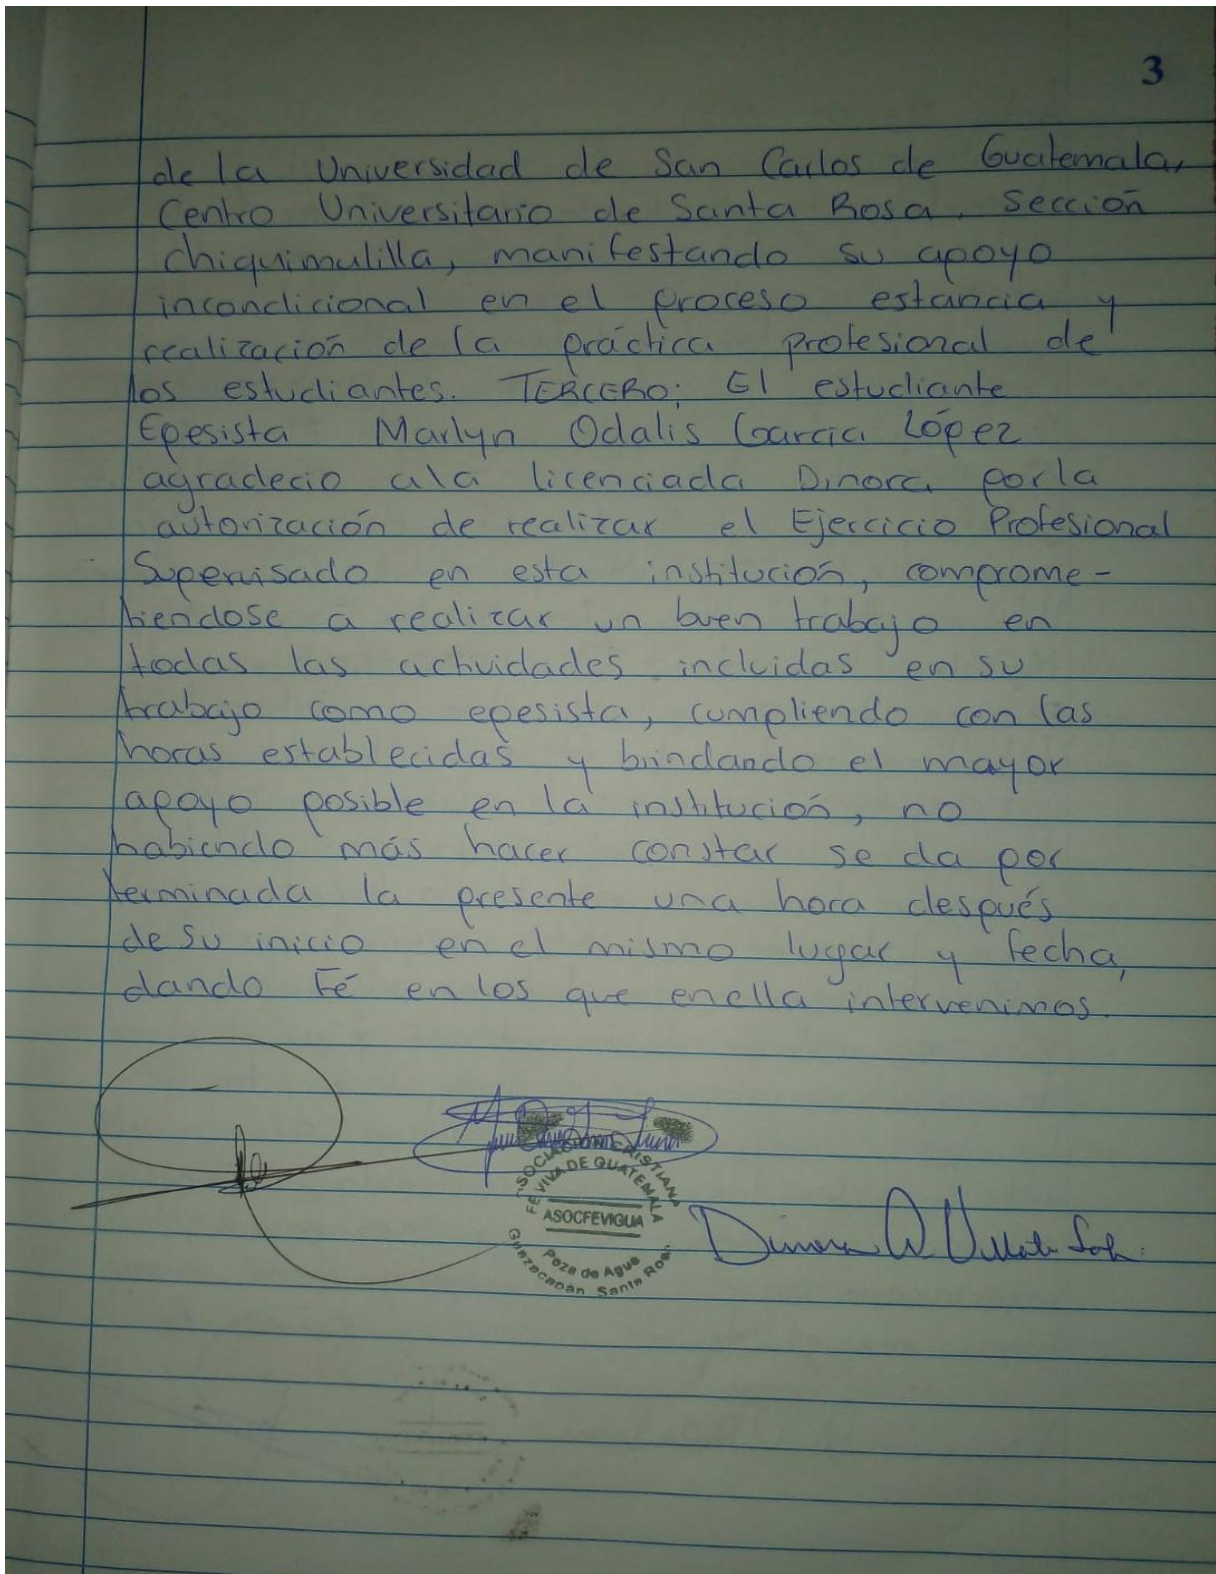 3
de la Universidad de San Carlos de Guatemala,
Centro Universitario de Santa Rosa, Sección
chiquimulilla, manifestando su apoyo
incondicional en el proceso estancia y
realización de la práctica profesional de
los estudiantes. TERCERO: El estudiante
Epesista Marlyn Odalis García López
agradecio ala licenciada Dinora por la
autorización de realizar el Ejercicio Profesional
Supervisado en esta institución, comprome-
tiendose a realizar un buen trabajo en
todas las actividades incluidas en su
trabajo como epesista, cumpliendo con las
horas establecidas y brindando el mayor
apoyo posible en la institución, no
habiendo más hacer constar se da por
terminada la presente una hora después
de su inicio en el mismo lugar y fecha,
dando Fé en los que en ella intervenimos.
ASOCIACIÓN CRISTIANA
FE VIVA DE GUATEMALA
ASOCFEVIGUA
Poza de Agua
Guazacapán Santa Rosa
Dinora